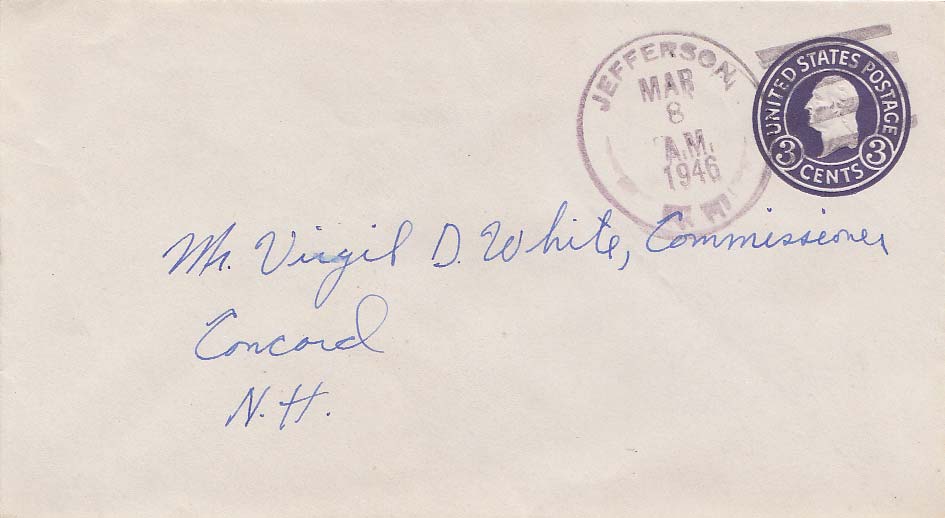 JEFFERSON
MAR
8
A.M.
1946
UNITED STATES POSTAGE
3 CENTS 3
Mr. Virgil D. White, Commissioner
Concord
N.H.